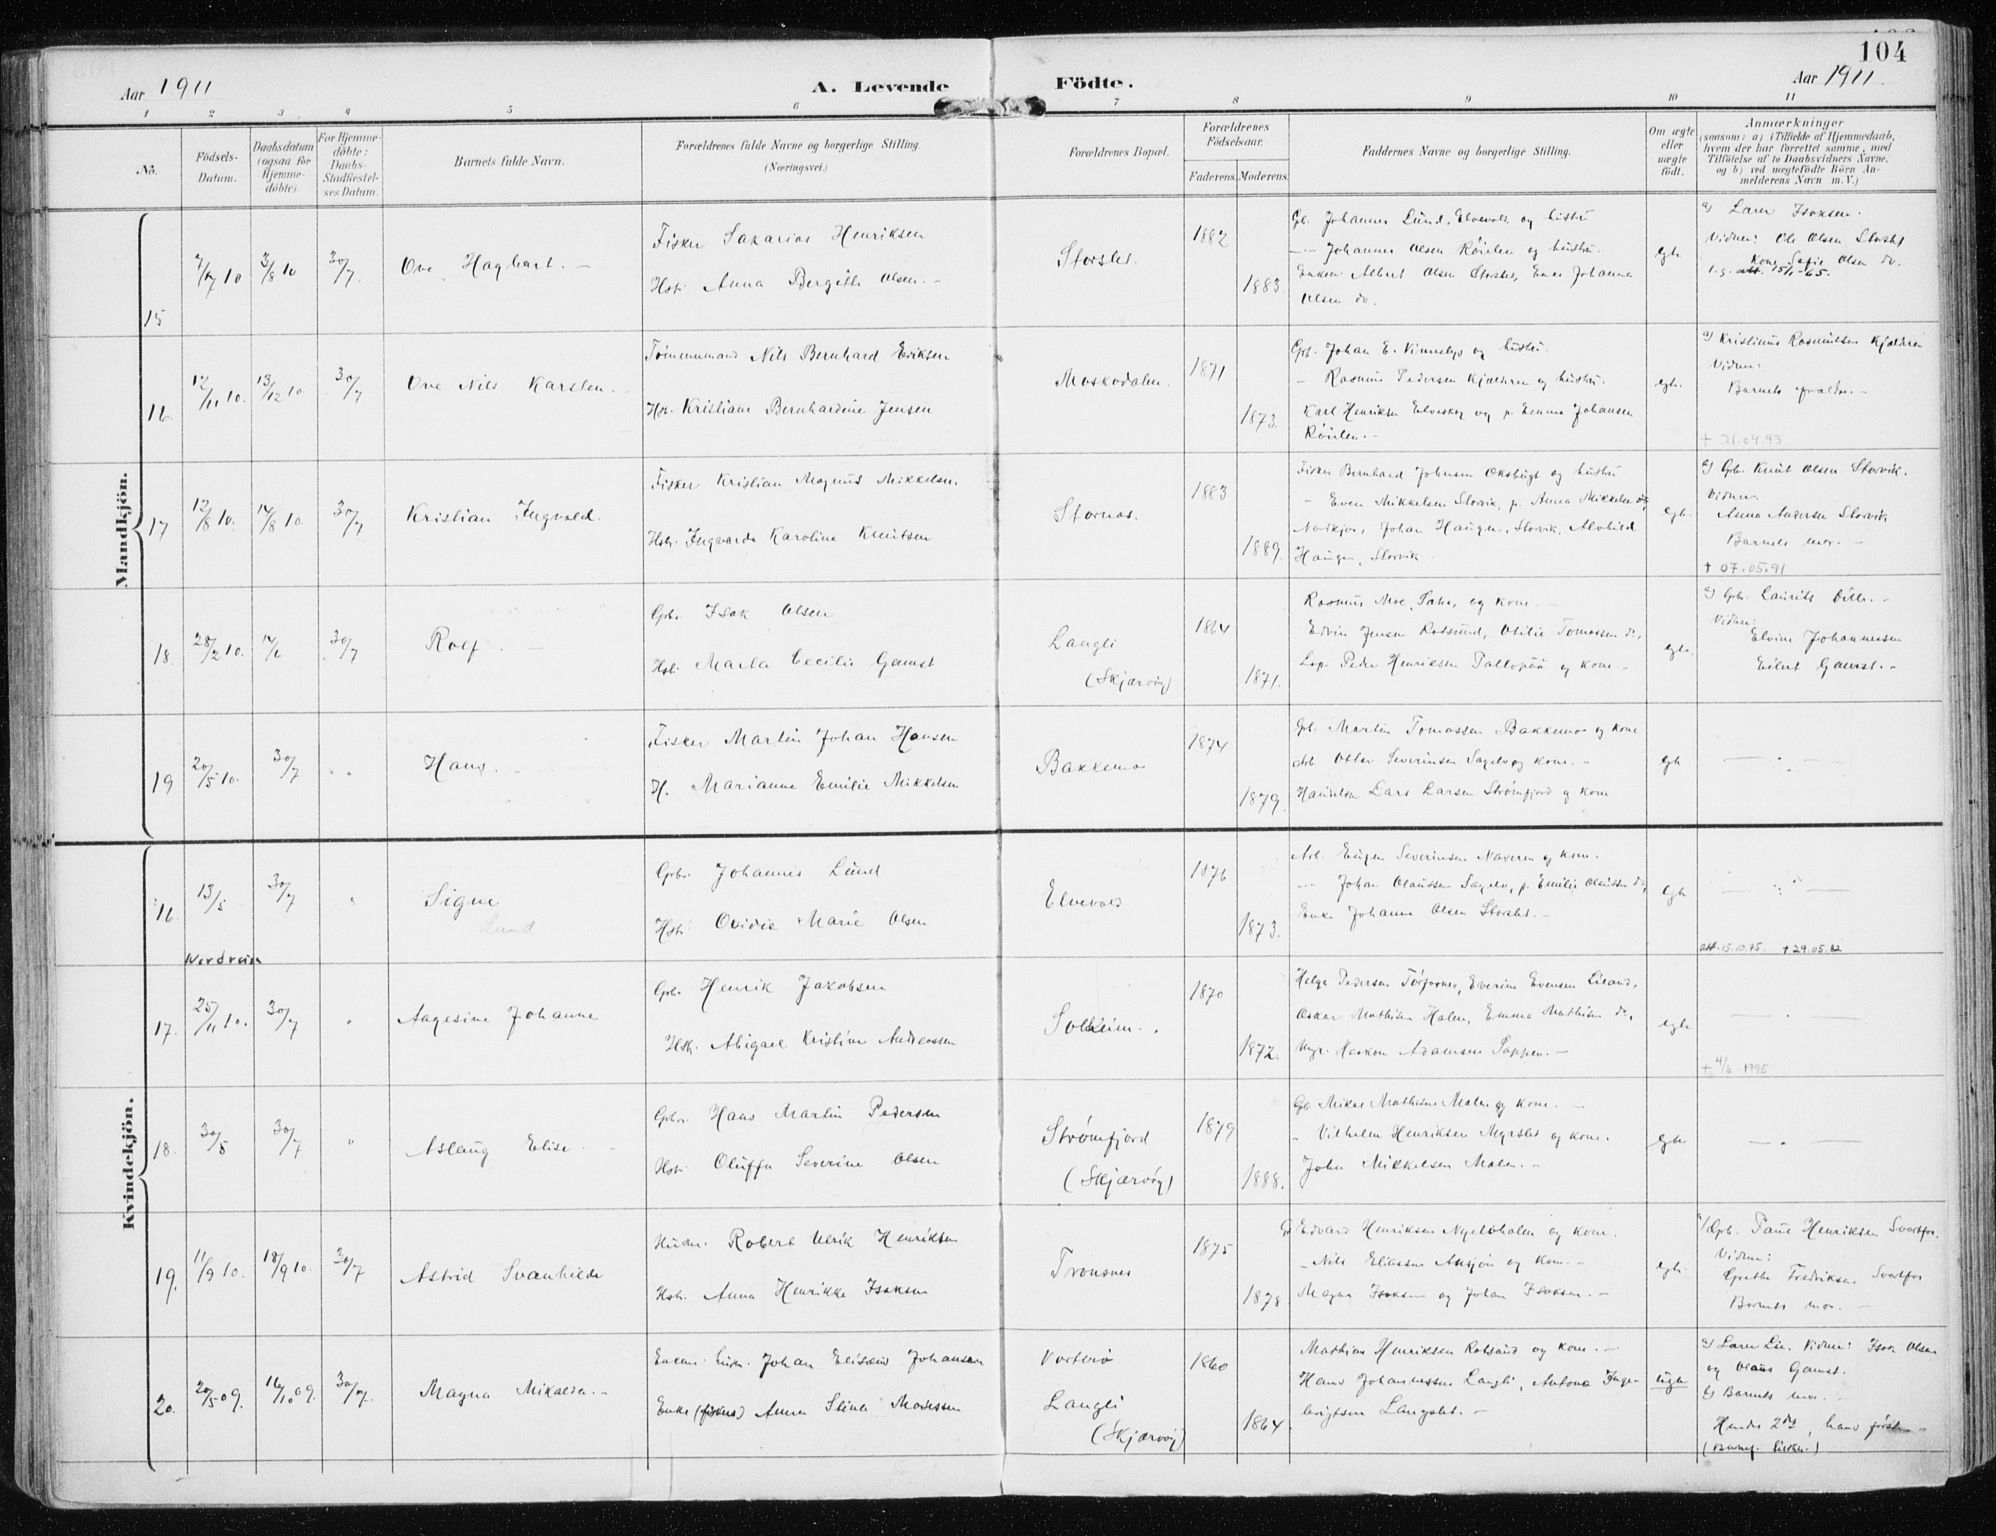 104
Aar 1911
A. Levende Födte.
Aar 1911.
1 2 3 4 5 6 7 8 9 10 11
No.
Födsels-Datum.
Daabsdatum (ogsaa for Hjemme-döbte).
For Hjemme-döbte: Daabs-Stadfæstel-ses Datum.
Barnets fulde Navn.
Forældrenes fulde Navne og borgerlige Stilling.
(Næringsvei.)
Forældrenes Bopæl.
Forældrenes Födselsaar.
Faderens. Moderens.
Faddernes Navne og borgerlige Stilling.
Om ægte eller uægte födt.
Anmærkninger
(saasom: a) i Tilfælde af Hjemmedaab,
hvem der har forrettet samme, med
Tilföielse af to Daabsvidners Navne,
og b) ved uægtefödte Börn An-
melderens Navn m. V.)
Mandkjön.
15 7/7 10 3/8 10 30/7. Ove Haghart. –
Fisker Sakarias Henriksen
Hstr. Anna Bergith Olsen. –
Storslet. 1882 1883.
Gb. Johannes Lund, Elvevold og hustru
–"– Johannes Olsen Røielen og hustru.
Enkem. Albert Olsen Storslet, Enke Johanna
Olsen do.
egte
a) Lærer Isaksen.
Vidner: Ole Olsen Storslet
Kone Sofie Olsen do.
l.g. att. 15/1-65.
16. 12/11 10. 13/12 10 30/7 Ove Nils Karsten. –
Tømmermand Nils Bernhard Eriksen
Hstr. Kristiane Bernhardine Jensen
Moskodalen. 1871 1873.
Gbr. Johan E. Vinnelys og hustru.
– Rasmus Pedersen Kjælderen og hustru.
Karl Henriksen Elveskog og p. Emma Johansen
Røielen. –
egte.
a) Kristianus Rasmussen Kjælderen
Vidner:
Barnets forældre. –
+ 21.04.93
17 12/8 10. 14/8 10. 30/7 Kristian Ingvald.
Fisker Kristian Magnus Mikkelsen.
Hstr. Ingvarda Karoline Knutsen
Stornes. 1883 1889.
Fisker Bernhard Johnsen Oksbugt og hustru
– Even Mikkelsen Storvik, p. Anna Mikkelsen do,
Nordkjos, Johan Haugen, Storvik, Alvhild
Haugen, Storvik
egte.
a) Gbr. Knut Olsen Storvik.
Vidner:
Anna Andersen Storvik
Barnets mor. –
+ 07.05.91
18. 28/2 10. 14/6 30/7 Rolf. –
Gbr. Isak Olsen
Hstr. Marta Cecilie Gamst
Langli
(Skjærvøy) 1864 1871.
Rasmus Moe, Sappen, og kone. –
Edvin Jensen Rotsund, Otilie Tomassen do.,
Lsp. Peder Henriksen og kone. –
egte.
a) Gbr. Laurits –
Vidner:
Elvine Johannesen
Eilert Gamst. –
19 20/5 10. 30/7 " " Hans. –
Fisker Martin Johan Hansen
H. Marianne Emilie Mikkelsen
Bakkemo 1874 1879.
Gb. Martin Tomassen Bakkemo og kone
Arb. Ottar Severinsen Sagelv og kone. –
Handelsm. Lars Larsen Strømfjord og kone
egte
— " —
Kvindekjön.
16. 13/5 30/7 " Signe
Lund
Gbr. Johannes Lund
Hstr. Ovidie Marie Olsen
Elvevold 1876 1873.
Arb. Eugen Severinsen Naveren og kone.
–"– Johan Olaussen Sagelv, p. Emilie Olaussen do,
Enke Johanne Olsen Storslet. –
egte
— " —
att. 15.10.75. +29.05.82
Nordreisa
17. 25/11 10. 30/7 " Aagesine Johanne
Gbr. Henrik Jakobsen
Hstr. Abigael Kristine Andreassen
Solheim. 1870 1872.
Helga Pedersen Tørfosnes, Everine Evensen Liland,
Oskar Mathisen Halen, Emma Mathisen do,
Ungk. Haakon Adamsen Sappen. –
egte
— " —
+ 4/6-1995
18. 30/5 30/7 " Aslaug Elise. –
Gbr. Hans Martin Pedersen
Hstr. Oluffa Severine Olsen
Strømfjord
(Skjærvøy) 1879 1888.
Gb. Mikal Mathisen Malen og kone. –
– Vilhelm Henriksen Myrslet og kone.
John Mikkelsen Malen. –
egte
— " —
19. 11/9 10. 18/9 10. 30/7 Astrid Svanhilde
Robert Ulrik Henriksen
Hstr. Anna Henrikke Isaksen
Tronsnes 1875 1878
Gb Edvard Henriksen Nyelvholmen og kone.
– Nils Eliassen og kone. –
Magna Isaksen og Johan Isaksen. –
egte
a) Gbr. Paul Henriksen Svartfos.
Vidner:
Grethe Fredriksen Svartfos
Barnets mor. –
20. 20/5 09. 16/10 09. 30/7. Magna Mikalda. –
Enkem. Johan Elisæus Johansen
Enke (fiskers) Anna Stina Madsen
Vorterø
Langli
(Skjærvøy) 1860 1864.
Mathias Henriksen Rotsund og kone. –
Hans Johannessen Langli, Antona Inge-
brigtsen Langslet. –
uegte
a) Lærer Lie. Vidner: Isak Olsen
og Olaus Gamst.
b) Barnets mor. –
Hendes 2det, hans første –